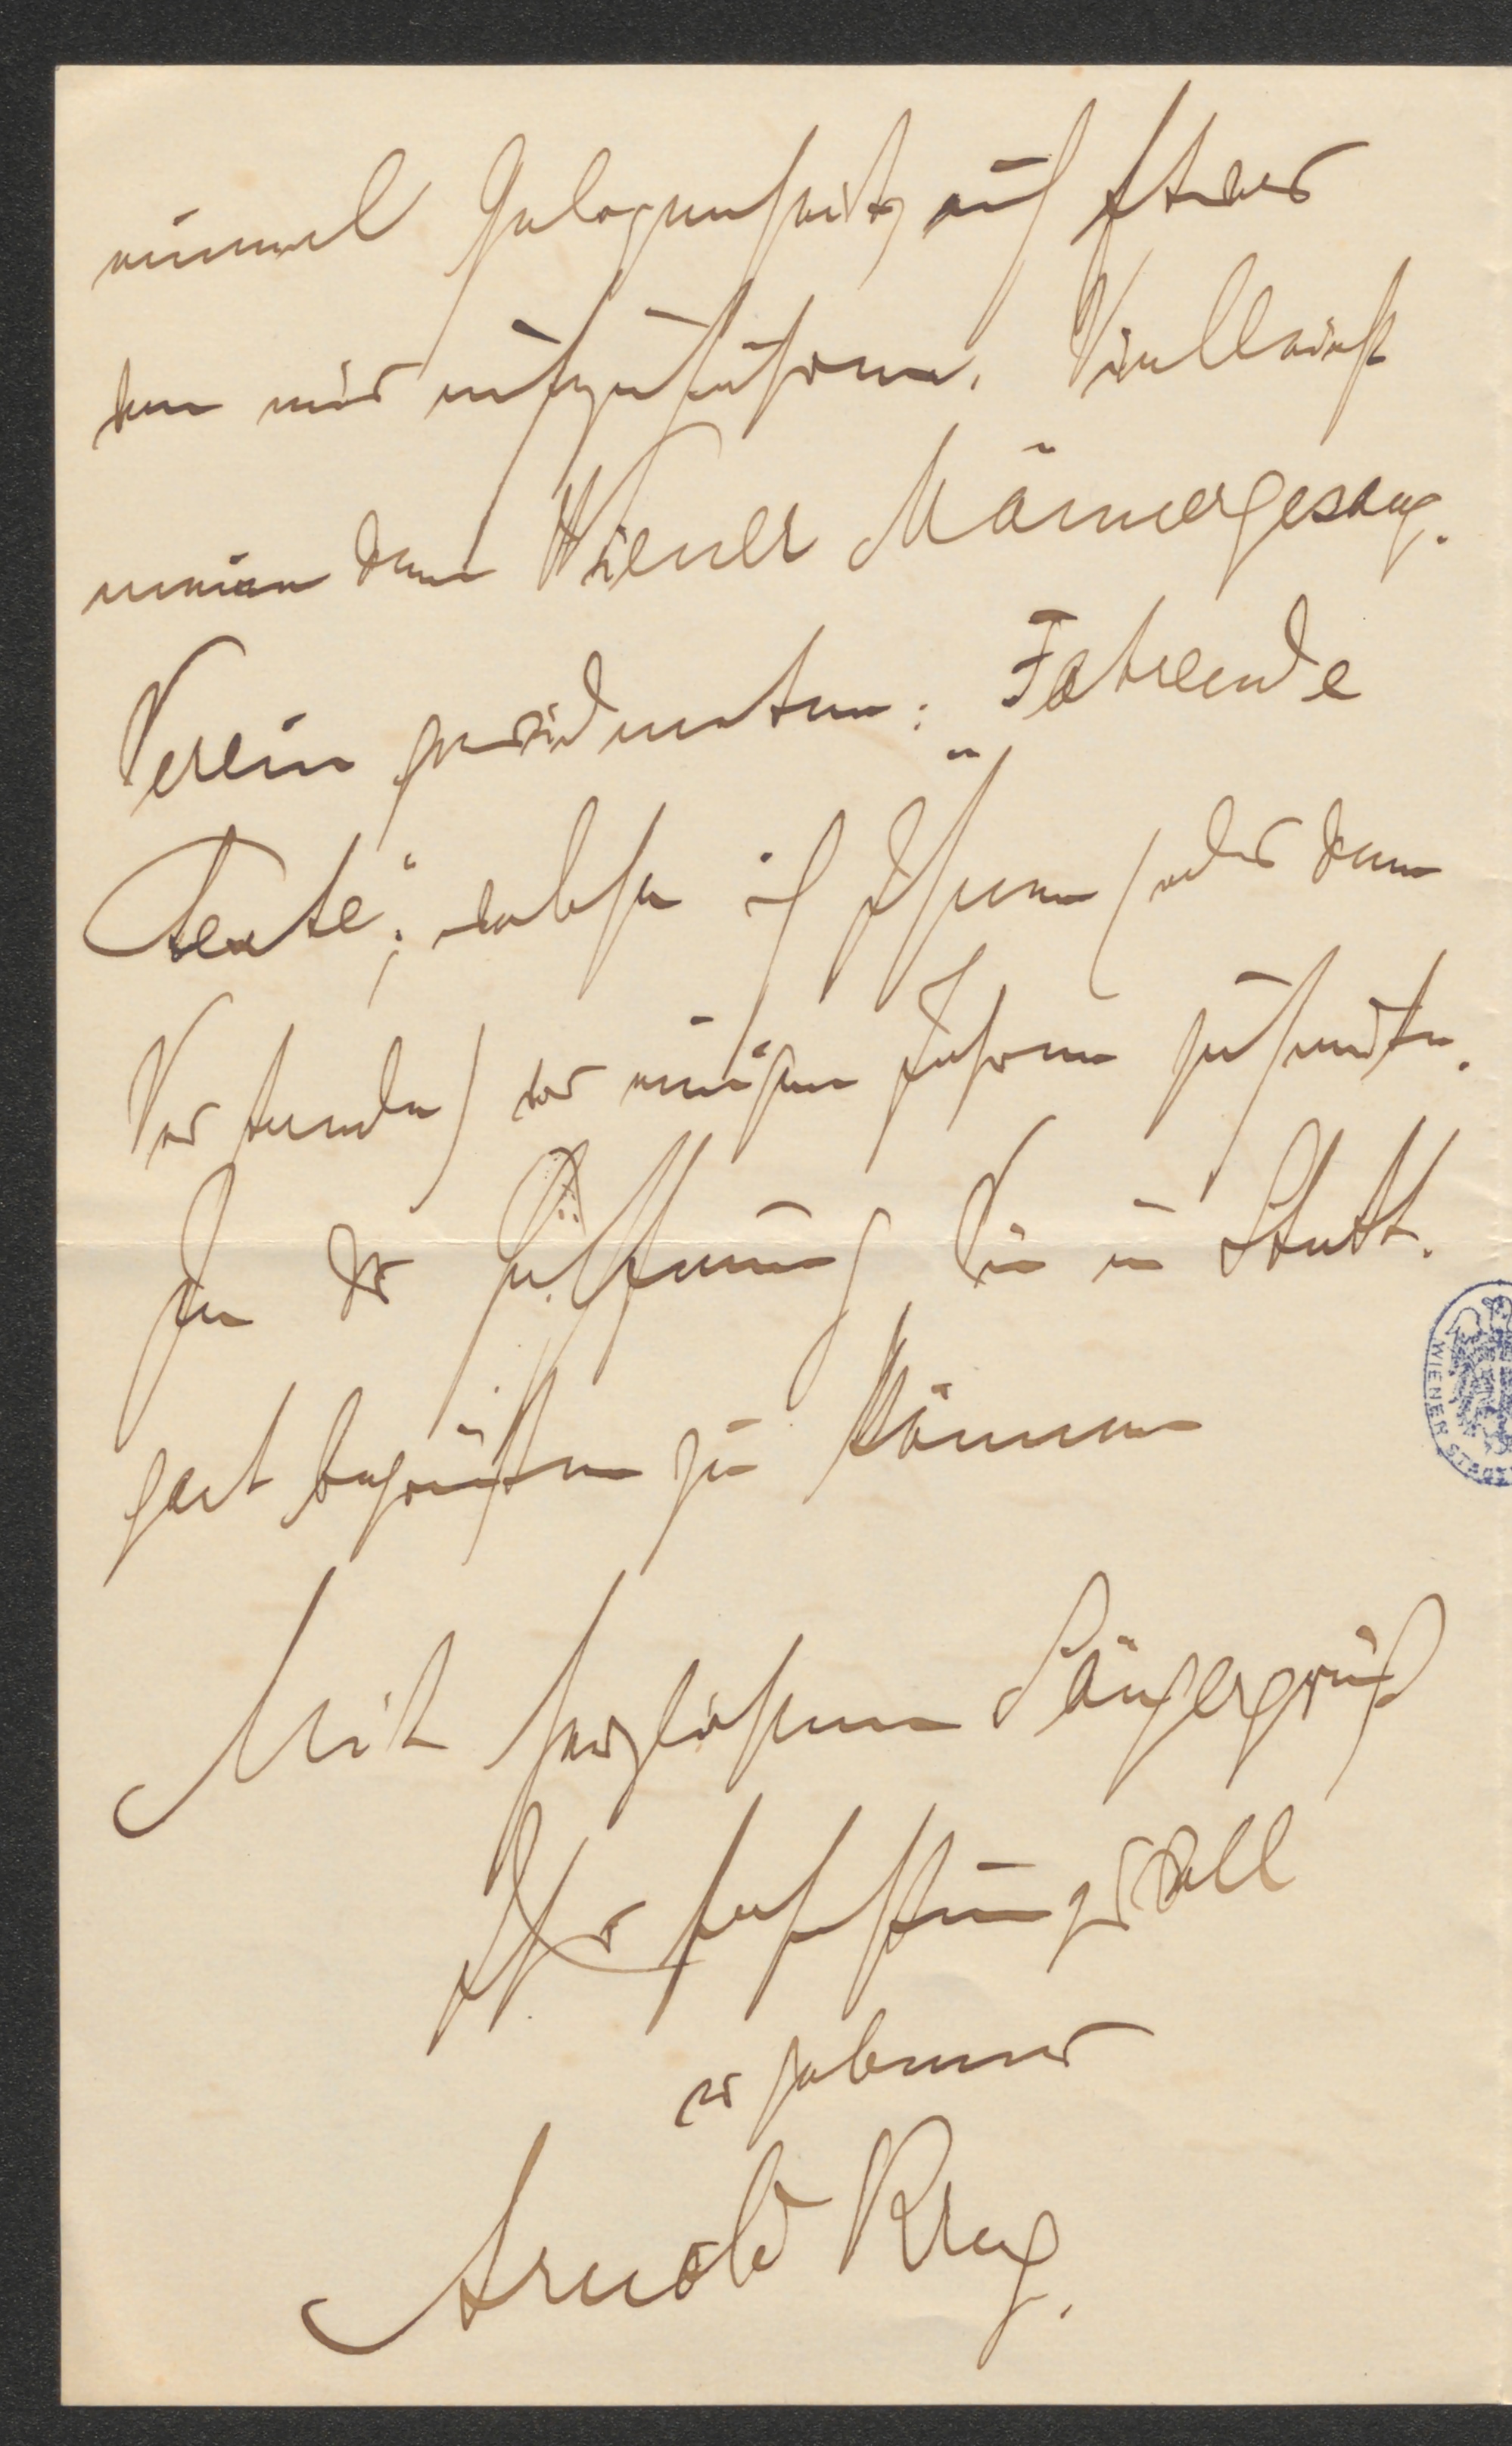 einmal Gelegenheit, auch Etwas
von mir aufzuführen. Vielleicht
meinen dem Wiener Männergesang-
Verein gewidmeten: „Fahrende
Leute“, welche ich Ihnen (oder dem
Vorstande) vor einigen Jahren zusandte.
In der Hoffnung, Sie in Stutt-
gart begrüßen zu können
Mit herzlichem Sängergruß
Ihr hochachtungsvoll
ergebener
Arnold Krug.
WIENER STADT